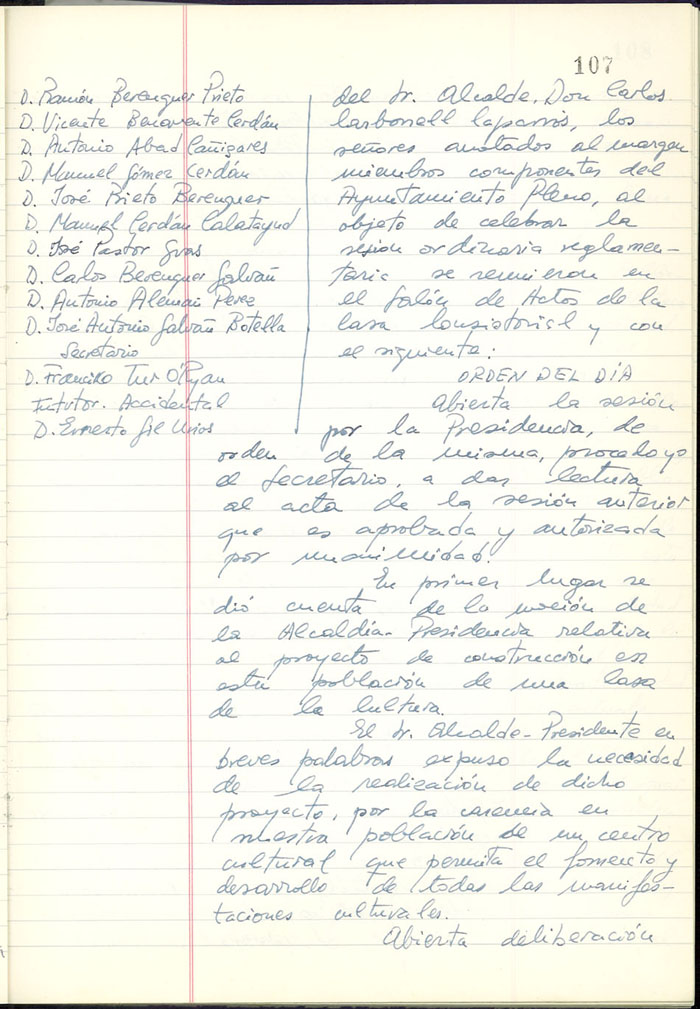 107
D. Ramón Berenguer Prieto
D. Vicente Benavente Cerdán
D. Antonio Abad Cañizares
D. Manuel Gómez Cerdán
D. José Prieto Berenguer
D. Manuel Cerdán Calatayud
D. José Pastor Gras
D. Carlos Berenguer Galvañ
D. Antonio Alemañ Perez
D. José Antonio Galvañ Botella
Secretario
D. Francisco Tur O'Ryan
Intvtor. Accidental
D. Ernesto Gil Mios
del Sr. Alcalde, Don Carlos
Carbonell Caparrós, los
señores anotados al margen
miembros componentes del
Ayuntamiento Pleno, al
objeto de celebrar la
sesión ordinaria reglamen-
taria se reunieron en
el Salón de Actos de la
Casa Consistorial y con
el siguiente:
ORDEN DEL DÍA
Abierta la sesión
por la Presidencia, de
orden de la misma, procedo yo
el Secretario, a dar lectura
al acta de la sesión anterior
que es aprobada y autorizada
por unanimidad.
En primer lugar se
dió cuenta de la moción de
la Alcaldía-Presidencia relativa
al proyecto de construcción en
esta población de una Casa
de la Cultura.
El Sr. Alcalde-Presidente en
breves palabras expuso la necesidad
de la realización de dicho
proyecto, por la carencia en
nuestra población de un centro
cultural que permita el fomento y
desarrollo de todas las manifes-
taciones culturales.
Abierta deliberación